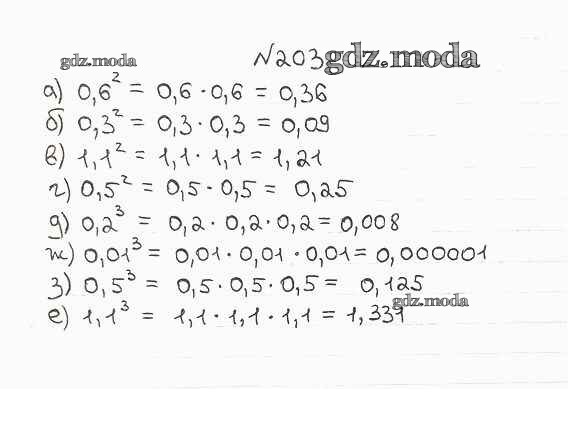 gdz.moda
№203 gdz.moda
а) 0,6² = 0,6 · 0,6 = 0,36
б) 0,3² = 0,3 · 0,3 = 0,09
в) 1,1² = 1,1 · 1,1 = 1,21
г) 0,5² = 0,5 · 0,5 = 0,25
д) 0,2³ = 0,2 · 0,2 · 0,2 = 0,008
ж) 0,01³ = 0,01 · 0,01 · 0,01 = 0,000001
з) 0,5³ = 0,5 · 0,5 · 0,5 = 0,125
gdz.moda
е) 1,1³ = 1,1 · 1,1 · 1,1 = 1,331